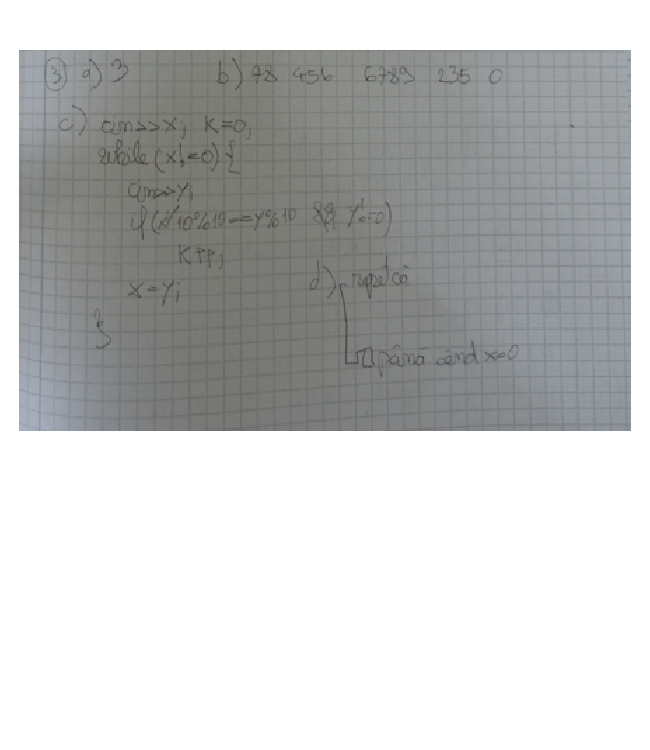 3 a) 3 b) 78 456 6789 235 0
c) cin>>x; k=0;
while (x!=0) {
cin>>y;
if (x/10%10==y%10 && y!=0)
k++;
x=y;
d) repetă
}
până când x=0